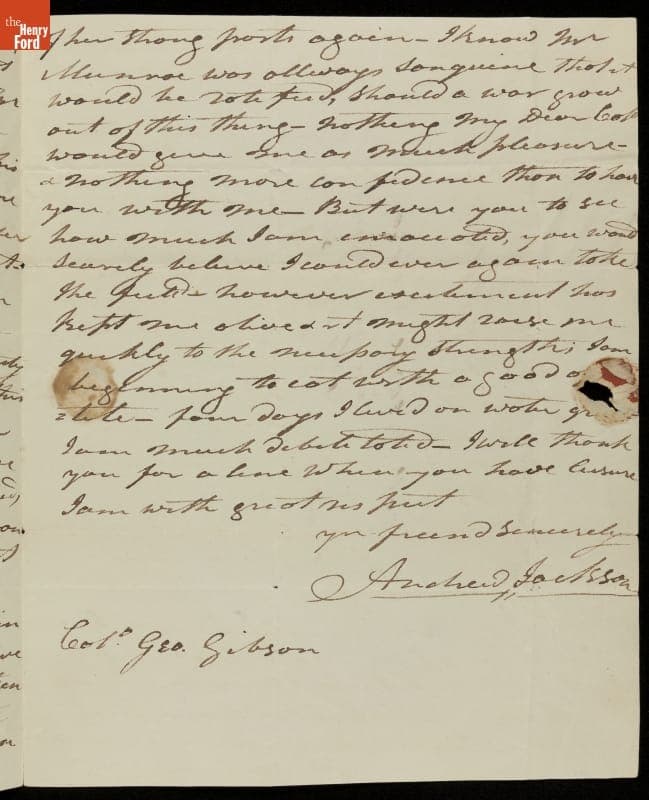 the
Henry
Ford
of her strong posts again – I know Mr
Munroe was allways sanguine that it
would be ratefied, should a war grow
out of this thing – nothing my Dear Colo
would give me as much pleasure –
& nothing more confidence than to have
you with me – But were you to see
how much I am emaciated, you would
scarely believe I could ever again take
the field – however excitement has
kept me alive & it might raise me
quickly to the necessary strength; I am
beginning to eat with a good a
=tite – four days I lived on water
I am much debilitated – I will thank
you for a line when you have lisure
I am with great respect
yr freind sincerely
Andrew Jackson
Colo. Geo. Gibson